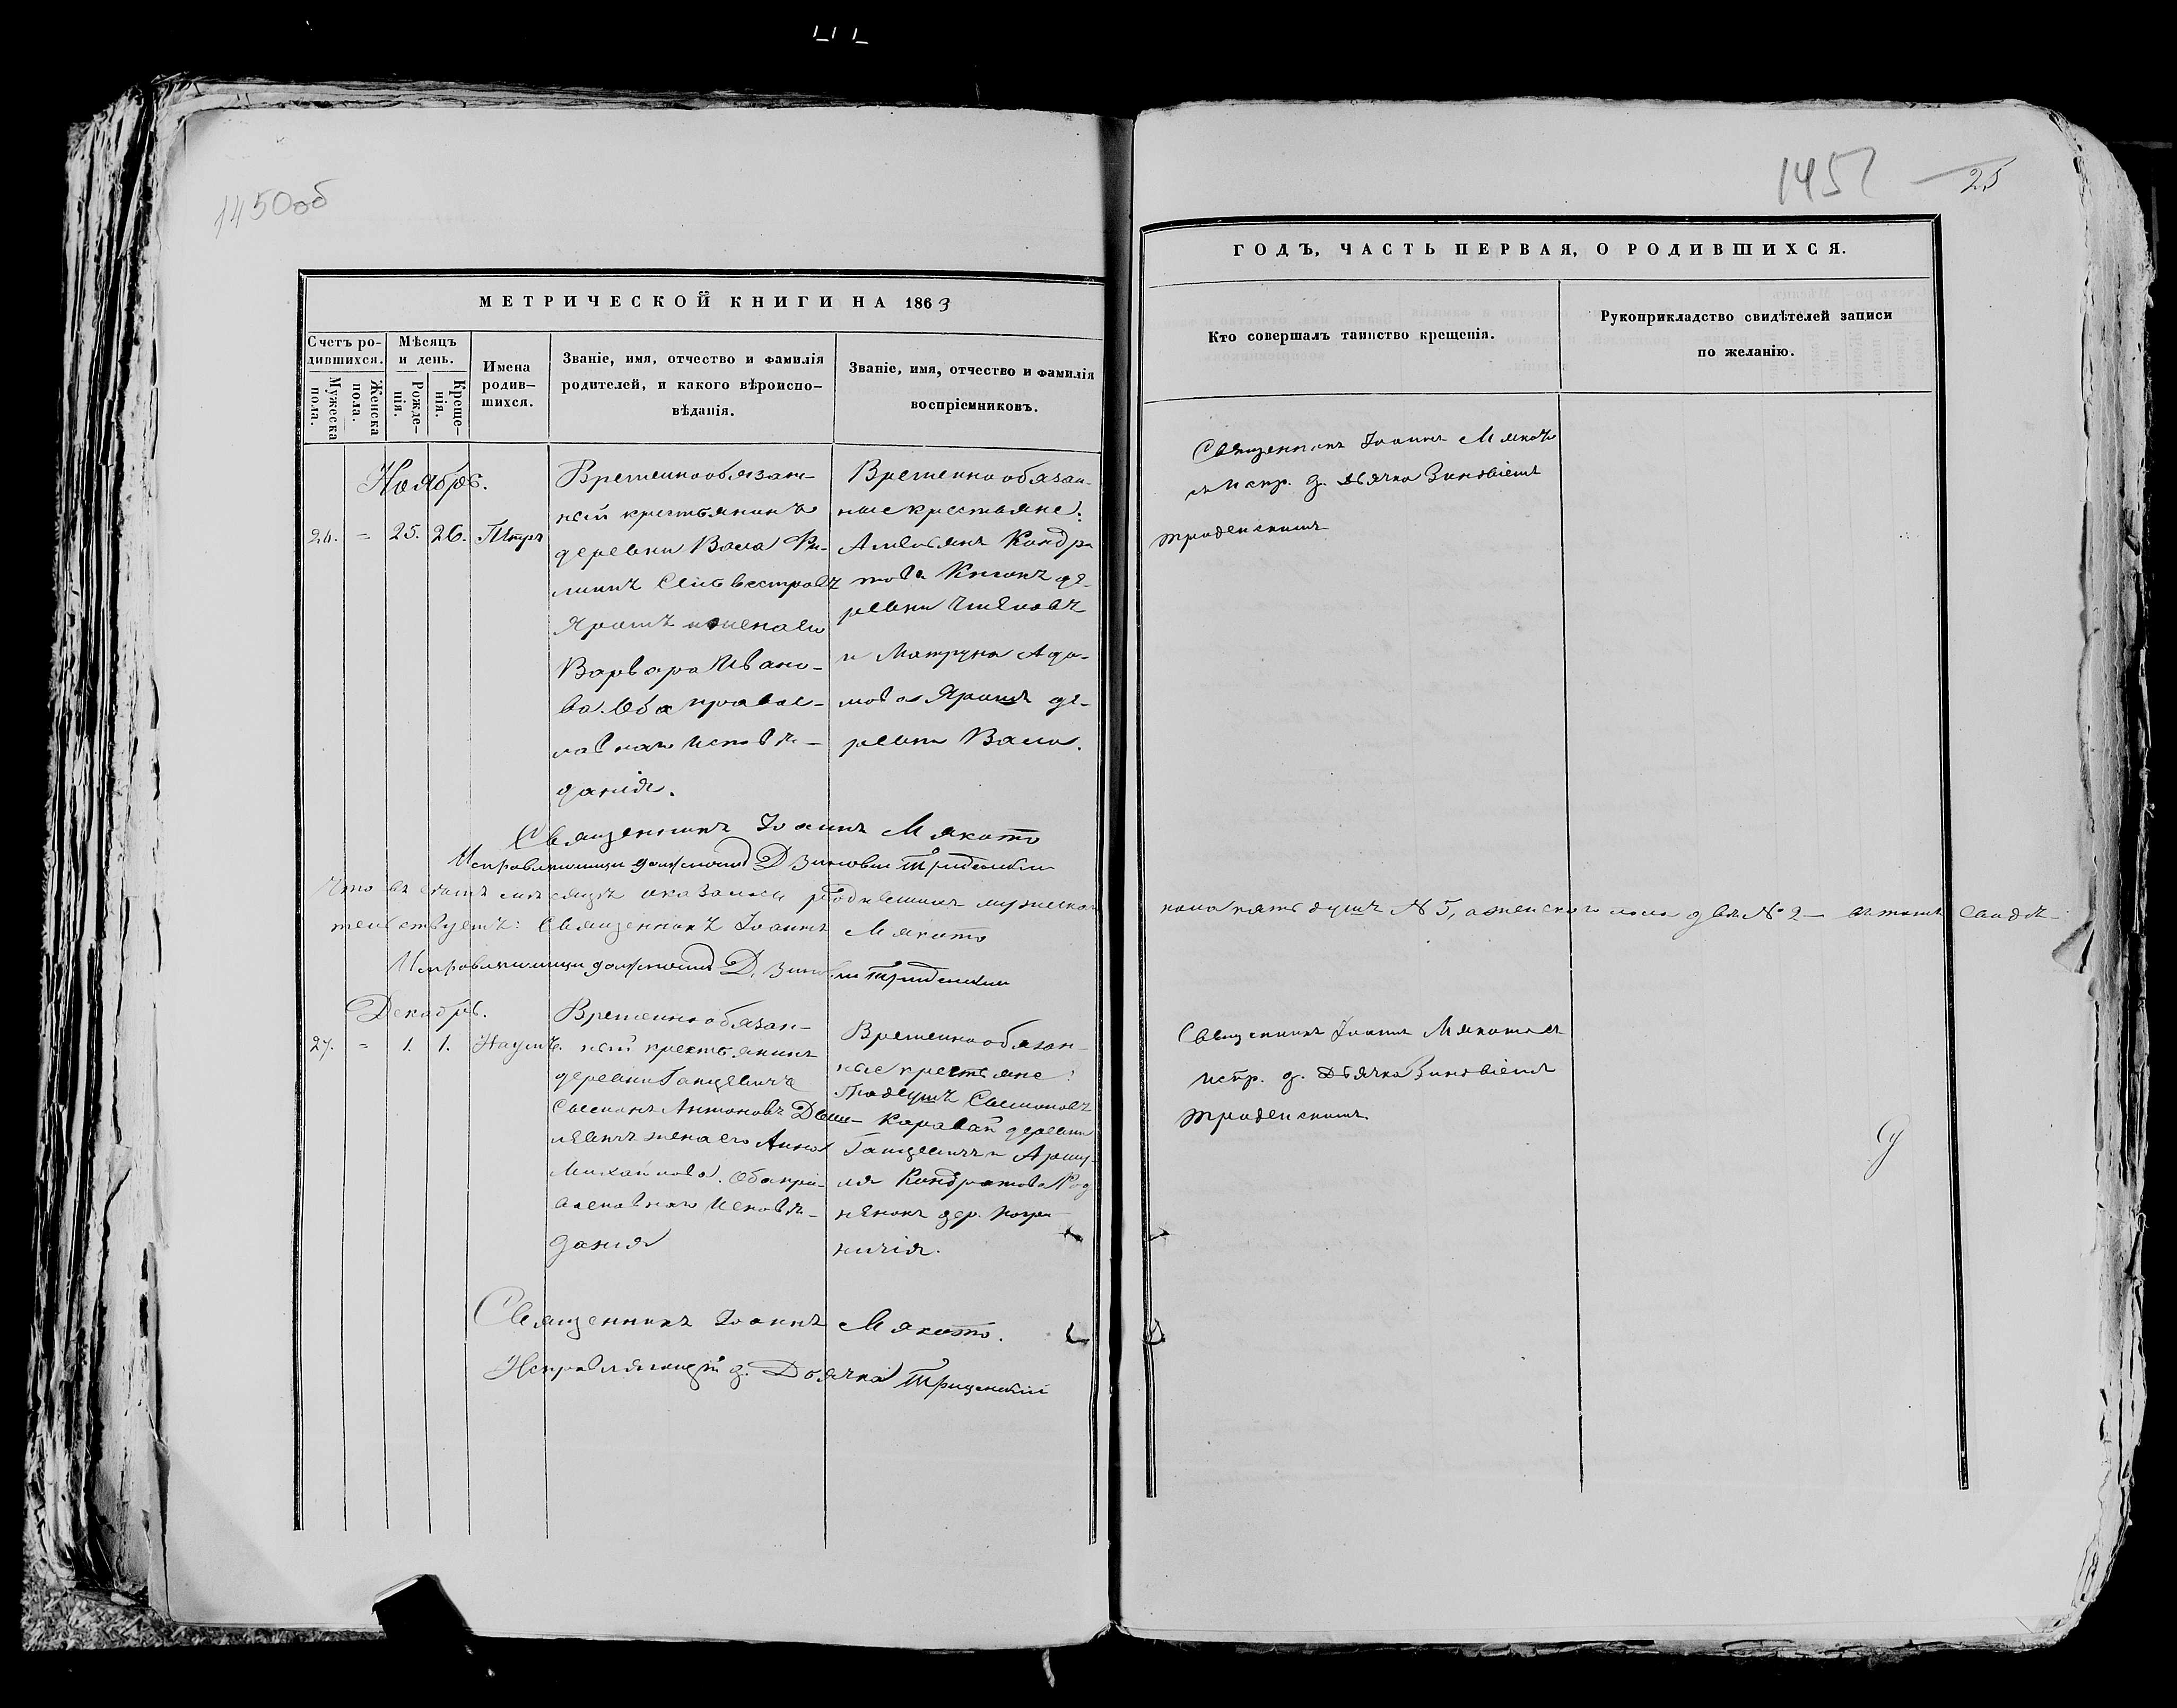 1450об
МЕТРИЧЕСКОЙ КНИГИ НА 1863
Счетъ ро-
дившихся.
Мужеска
пола.
Женска
пола.
Мѣсяцъ
и день.
Рожде-
нія.
Креще-
нія.
Имена
родив-
шихся.
Званіе, имя, отчество и фамилія
родителей, и какого вѣроиспо-
вѣданія.
Званіе, имя, отчество и фамилія
воспріемниковъ.
Ноябрь.
25. 26. Петръ
Временнообязан-
ный крестьянинъ
деревни Вала Фи-
липпъ Сильвестровъ
Ярошъ и жена его
Варвара Ивано-
ва. Оба правос-
лавнаго исповѣ-
данія.
Временно обязан-
ные крестьяне:
Амельянъ Кондра
това де-
ревни
и Матруна Ада-
мова Ярошъ де-
ревни Вала.
Священникъ Іоаннъ Мякото
Исправляющій должность Д Зиновій
Что въ семъ мѣсяцѣ оказалось родившихся мужеска
тельствуетъ: Священникъ Іоаннъ Мякото
Исправляющій должность Д.
Декабрь.
27. = 1. 1. Наумъ.
Временнообязан-
ный крестьянинъ
деревни Ганцевичъ
Антоновъ
жена его Анна
Михайлова. Оба пра-
вославнаго исповѣ-
данія
Временнообязан-
ные крестьяне:
Каравай деревни
Ганцевичъ и
Кондратова
дер.
Священникъ Іоаннъ Мякото.
Исправляющій д. Дьячка
1451 25
ГОДЪ, ЧАСТЬ ПЕРВАЯ, О РОДИВШИХСЯ.
Кто совершалъ таинство крещенія.
Рукоприкладство свидѣтелей записи
по желанію.
Священникъ Іоаннъ Мякото
съ испр. д. дьячка Зиновіемъ
пола пять душъ № 5, а женскаго пола двѣ № 2 – въ томъ свидѣ-
Священникъ Іоаннъ Мякото съ
испр. д. Дьячка Зиновіемъ